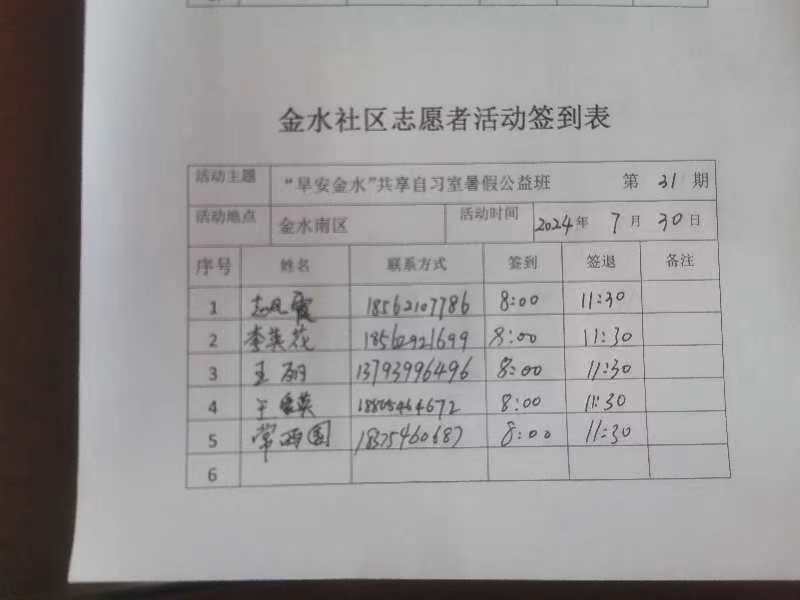 金水社区志愿者活动签到表
活动主题 “早安金水”共享自习室暑假公益班 第 31 期
活动地点 金水南区 活动时间 2024年 7月 30日
序号 姓名 联系方式 签到 签退 备注
1 18562107786 8:00 11:30
2 李英花 18562921699 8:00 11:30
3 王丽 13793996496 8:00 11:30
4 18805464672 8:00 11:30
5 常西国 18375460687 8:00 11:30
6